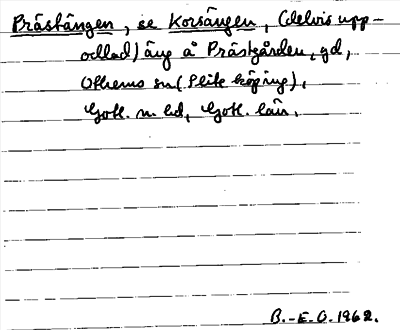 Prästängen, se Korsängen, (delvis upp-
odlad) äng å Prästgården, gd,
Othems sn (Slite köping),
Gotl. n. hd, Gotl. län.
B.-E.O. 1962.